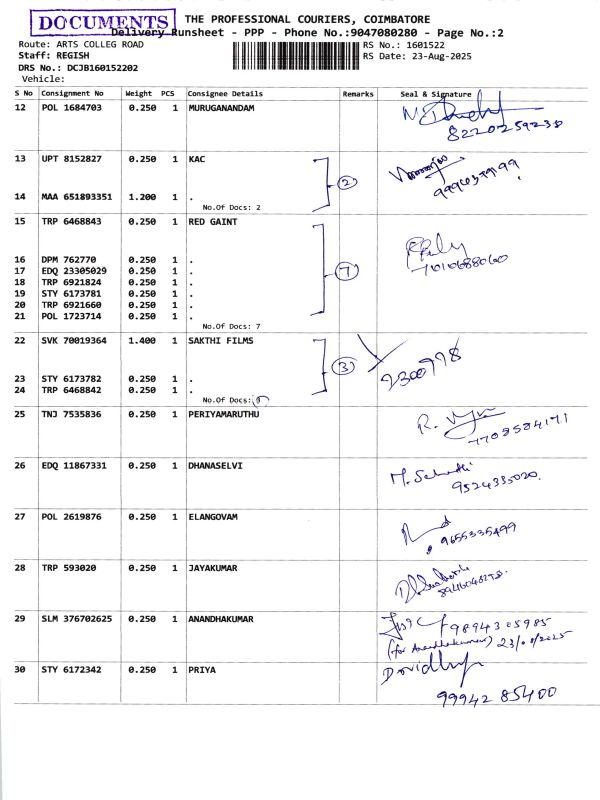 DOCUMENTS
THE PROFESSIONAL COURIERS, COIMBATORE
Delivery Runsheet - PPP - Phone No.:9047080280 - Page No.:2
Route: ARTS COLLEG ROAD
RS No.: 1601522
Staff: REGISH
RS Date: 23-Aug-2025
DRS No.: DCJB160152202
Vehicle:
S No Consignment No Weight PCS Consignee Details Remarks Seal & Signature
12 POL 1684703 0.250 1 MURUGANANDAM
8220259238
13 UPT 8152827 0.250 1 KAC
2
14 MAA 651893351 1.200 1 .
No.Of Docs: 2
15 TRP 6468843 0.250 1 RED GAINT
16 DPM 762770 0.250 1 .
7010688060
17 EDQ 23305029 0.250 1 .
7
18 TRP 6921824 0.250 1 .
19 STY 6173781 0.250 1 .
20 TRP 6921660 0.250 1 .
21 POL 1723714 0.250 1 .
No.Of Docs: 7
22 SVK 70019364 1.400 1 SAKTHI FILMS
3
2300778
23 STY 6173782 0.250 1 .
24 TRP 6468842 0.250 1 .
No.Of Docs: 3
25 TNJ 7535836 0.250 1 PERIYAMARUTHU
7708584171
26 EDQ 11867331 0.250 1 DHANASELVI
9524335020.
27 POL 2619876 0.250 1 ELANGOVAM
9655335499
28 TRP 593020 0.250 1 JAYAKUMAR
29 SLM 376702625 0.250 1 ANANDHAKUMAR
9894305985
(for Anandhakumar) 23/08/2025
30 STY 6172342 0.250 1 PRIYA
99942 85400